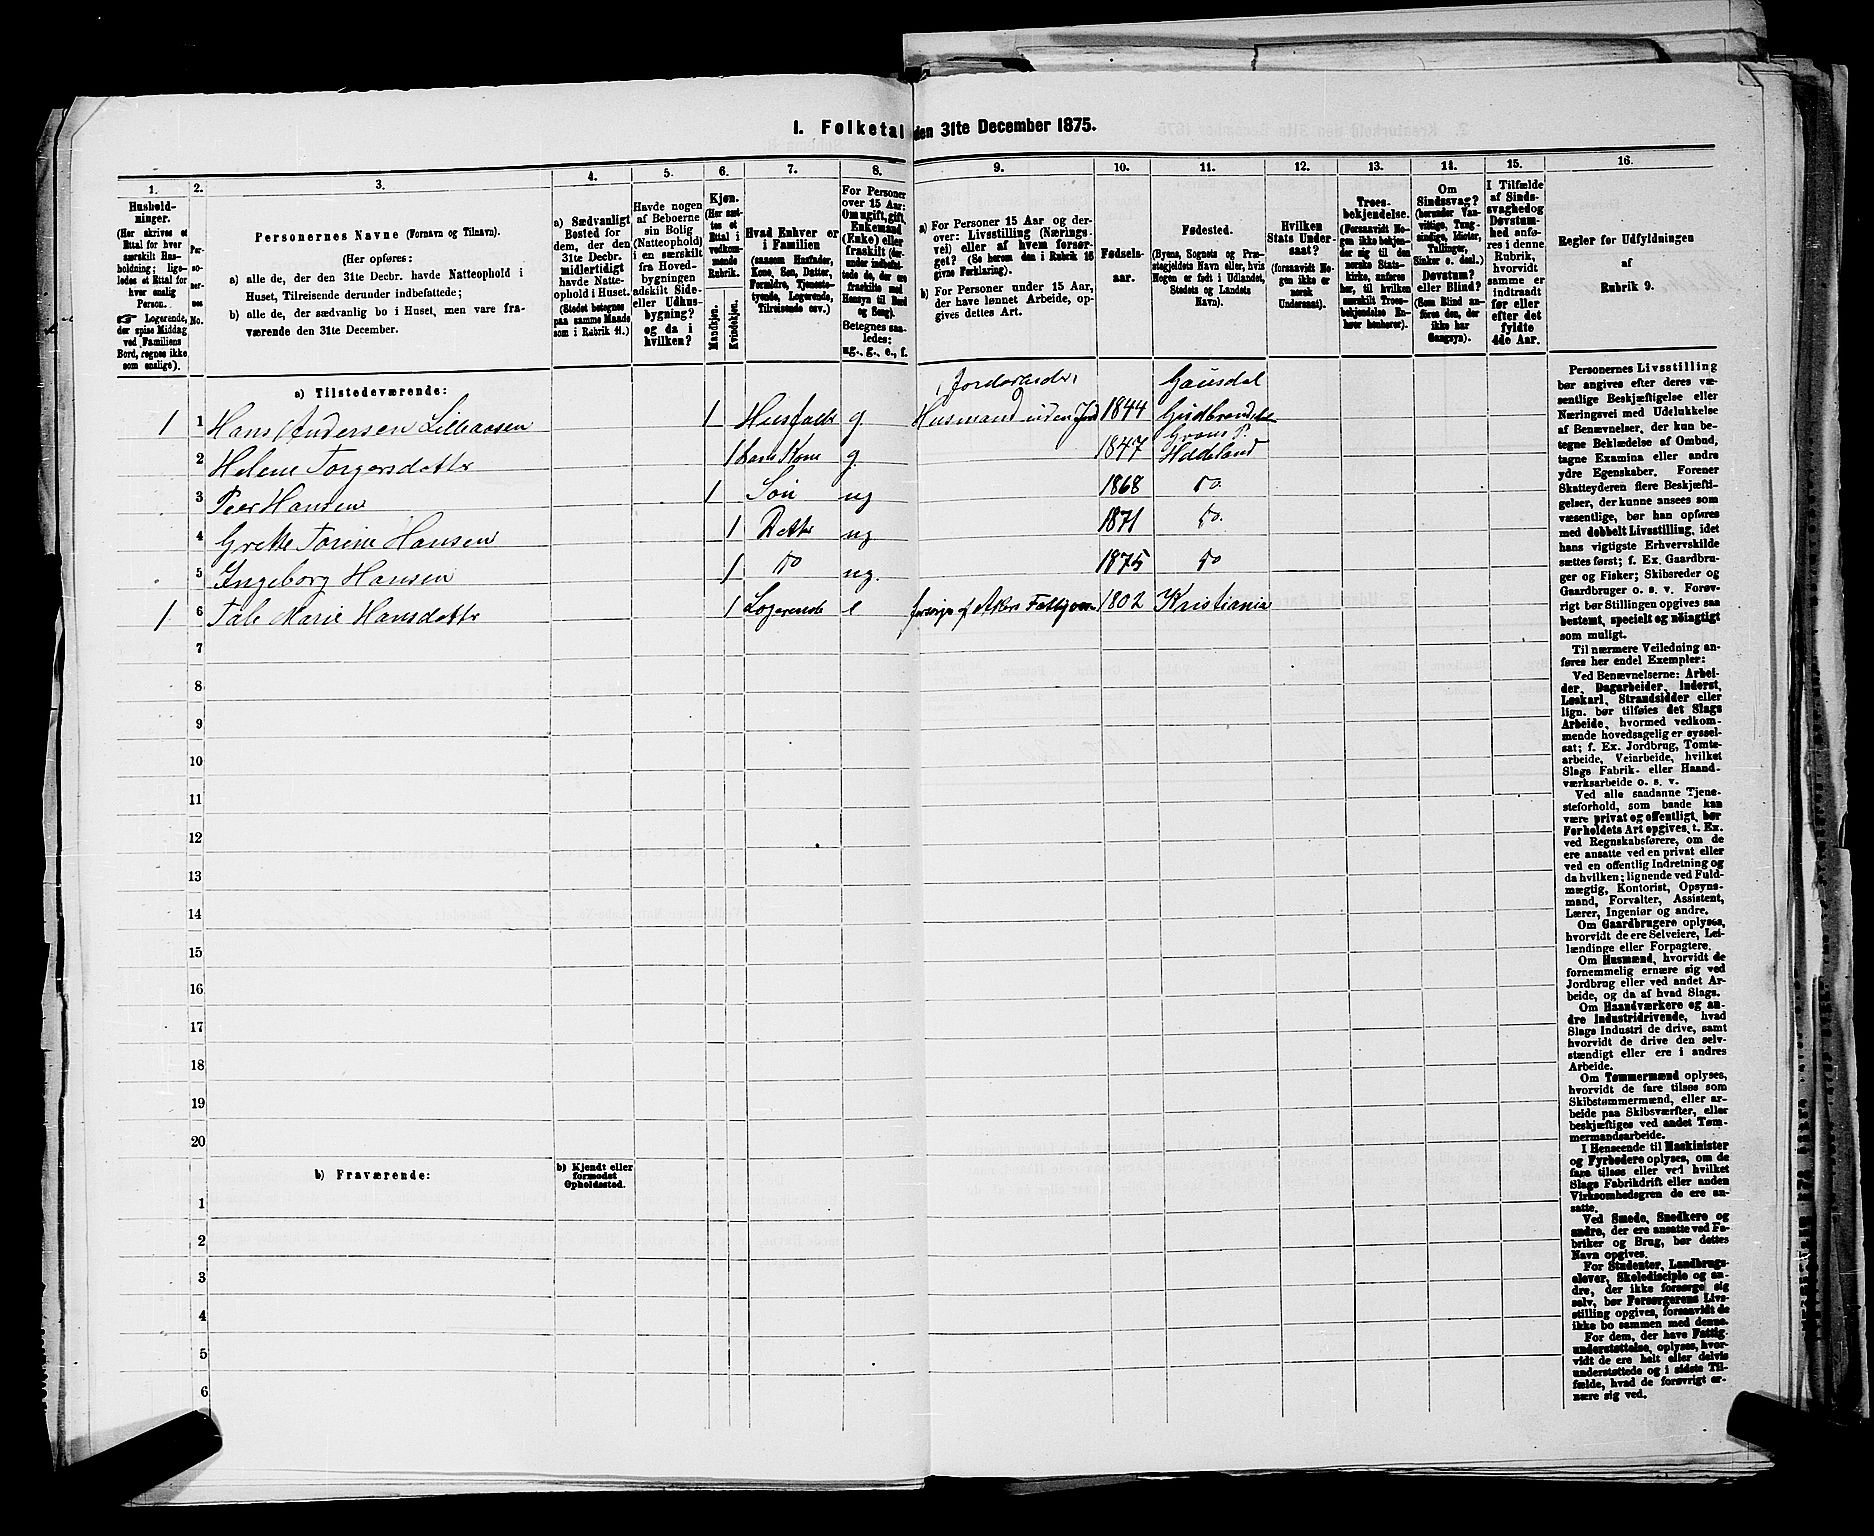 1. Folketal den 31te December 1875.
1.
Hushold-
ninger.
(Her skrives et
Ettal for hver
særskilt Hus-
holdning; lige-
ledes et Ettal for
hver enslig
Person.
Logerende,
der spise Middag
ved Familiens
Bord, regnes ikke
som enslige).
2.
Per-
so-
ner-
nes
No.
3.
Personernes Navne (Fornavn og Tilnavn).
(Her opføres:
a) alle de, der den 31te Decbr. havde Natteophold i
Huset, Tilreisende derunder indbefattede;
b) alle de, der sædvanlig bo i Huset, men vare fra-
værende den 31te December.
4.
a) Sædvanligt
Bosted for
dem, der den
31te Decbr.
midlertidigt
havde Natte-
ophold i Huset.
(Stedet betegnes
paa samme Maade
som i Rubrik 11.)
5.
Havde nogen
af Beboerne
sin Bolig
(Natteophold)
i en særskilt
fra Hoved-
bygningen
adskilt Side-
eller Udhus-
bygning?
og da i
hvilken?
6.
Kjøn.
(Her sæt-
tes et
Ettal i
vedkom-
mende
Rubrik.
Mandkjøn.
Kvindekjøn.
7.
Hvad Enhver er
i Familien
(saasom Husfader,
Kone, Søn, Datter,
Forældre, Tjeneste-
tyende, Logerende,
Tilreisende osv.)
8.
For Personer
over 15 Aar:
Om ugift, gift,
Enkemand
(Enke) eller
fraskilt (der-
under indbefat-
tede de, der ere
fraskilte med
Hensyn til Bord
og Seng).
Betegnes saa-
ledes:
ug., g., e., f.
9.
a) For Personer 15 Aar og der-
over: Livsstilling (Nærings-
vei) eller af hvem forsør-
get? (Se herom den i Rubrik 16
givne Forklaring).
b) For Personer under 15 Aar,
der have lønnet Arbeide, op-
gives dettes Art.
10.
Fødsels-
aar.
11.
Fødested.
(Byens, Sognets og Præ-
stegjeldets Navn eller, hvis
Nogen er født i Udlandet,
Stedets og Landets
Navn).
12.
Hvilken
Stats Under-
saat?
(forsaavidt No-
gen ikke er
norsk
Undersaat).
13.
Troes-
bekjendelse.
(Forsaavidt No-
gen ikke bekjen-
der sig til den
norske Stats-
kirke, anføres
her, til hvilken
særskilt Troes-
bekjendelse En-
hver henhører).
14.
Om
Sindssvag?
(herunder Van-
vittige, Tung-
sindige, Idioter,
Tullinger,
Sinker o. desl.)
Døvstum?
eller Blind?
(Som Blind an-
føres den, der
ikke har
Gangsyn).
15.
I Tilfælde
af Sinds-
svaghed og
Døvstum-
hed anfø-
res i denne
Rubrik,
hvorvidt
samme er
indtraadt
før eller
efter det
fyldte
4de Aar.
16.
Regler for Udfyldningen
af
Rubrik 9.
a) Tilstedeværende:
Jordarbeider Gausdal
1 1 Hans Andersen Lilleaasen 1 Husfader g. Husmand uden Jord 1844 Gudbrandsd.
Grans P.
2 Helene Torgersdatter 1 hans Kone g. 1847 Hadeland
3 Peer Hansen 1 Søn ug 1868 do.
4 Grethe Torine Hansen 1 Datter ug 1871 do.
5 Ingeborg Hansen 1 do ug. 1875 do
1 6 Tale Marie Hansdatter 1 Logerende e forsørges af Akers Fattigvæsen 1802 Kristiania
7
8
9
10
11
12
13
14
15
16
17
18
19
20
b) Fraværende:
b) Kjendt eller
formodet
Opholdssted.
1
2
3
4
5
6
Personernes Livsstilling
bør angives efter deres væ-
sentlige Beskjæftigelse eller
Næringsvei med Udelukkelse
af Benævnelser, der kun be-
tegne Beklædelse af Ombud,
tagne Examina eller andre
ydre Egenskaber. Forener
Skatteyderen flere Beskjæfti-
gelser, der kunne ansees som
væsentlige, bør han opføres
med dobbelt Livsstilling, idet
hans vigtigste Erhvervskilde
sættes først; f. Ex. Gaardbru-
ger og Fisker; Skibsreder og
Gaardbruger o. s. v. Forøv-
rigt bør Stillingen opgives saa
bestemt, specielt og nøiagtigt
som muligt.
Til nærmere Veiledning an-
føres her endel Exempler:
Ved Benævnelserne: Arbei-
der, Dagarbeider, Inderst,
Løskarl, Strandsidder eller
lign. bør tilføies det Slags
Arbeide, hvormed vedkom-
mende hovedsagelig er syssel-
sat; f. Ex. Jordbrug, Tomte-
arbeide, Veiarbeide, hvilket
Slags Fabrik- eller Haand-
værksarbeide o. s. v.
Ved alle saadanne Tjene-
steforhold, som baade kan
være privat og offentligt, bør
Forholdets Art opgives, f. Ex.
ved Regnskabsførere, om de
ere ansatte ved en privat eller
ved en offentlig Indretning og
da hvilken; lignende ved Fuld-
mægtig, Kontorist, Opsyns-
mand, Forvalter, Assistent,
Lærer, Ingeniør og andre.
Om Gaardbrugere oplyses,
hvorvidt de ere Selveiere, Lei-
lændinge eller Forpagtere.
Om Husmænd, hvorvidt de
fornemmelig ernære sig ved
Jordbrug eller ved andet Ar-
beide, og da af hvad Slags.
Om Haandværkere og an-
dre Industridrivende, hvad
Slags Industri de drive, samt
hvorvidt de drive den selv-
stændigt eller ere i andres
Arbeide.
Om Tømmermænd oplyses,
hvorvidt de fare tilsøs som
Skibstømmermænd, eller ar-
beide paa Skibsværfter, eller
beskjæftiges ved andet Tøm-
mermandsarbeide.
I Henseende til Maskinister
og Fyrbødere oplyses, om de
fare tilsøs eller ved hvilket
Slags Fabrikdrift eller anden
Virksomhedsgren de ere an-
satte.
Ved Smede, Snedkere og
andre, der ere ansatte ved Fa-
briker og Brug, bør dettes
Navn opgives.
For Studenter, Landbrugs-
elever, Skoledisciple og an-
dre, der ikke forsørge sig
selv, bør Forsørgerens Livs-
stilling opgives, forsaavidt de
ikke bo sammen med denne.
For dem, der have Fattig-
understøttelse, oplyses, hvor-
vidt de ere helt eller delvis
understøttede og i sidste Til-
fælde, hvad de forøvrigt er-
nære sig ved.